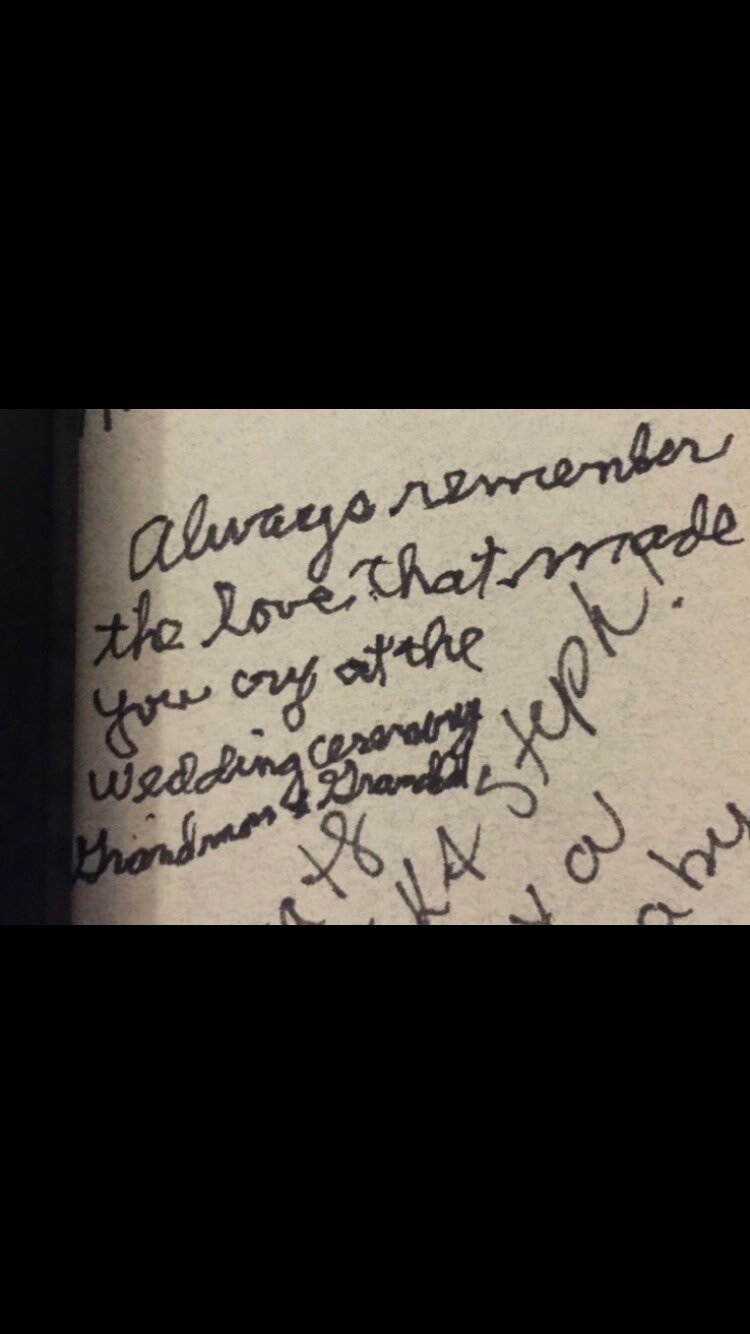 Always remember
the love that made
you cry at the
wedding ceremony
Grandmom & Grandad
Steph!
a